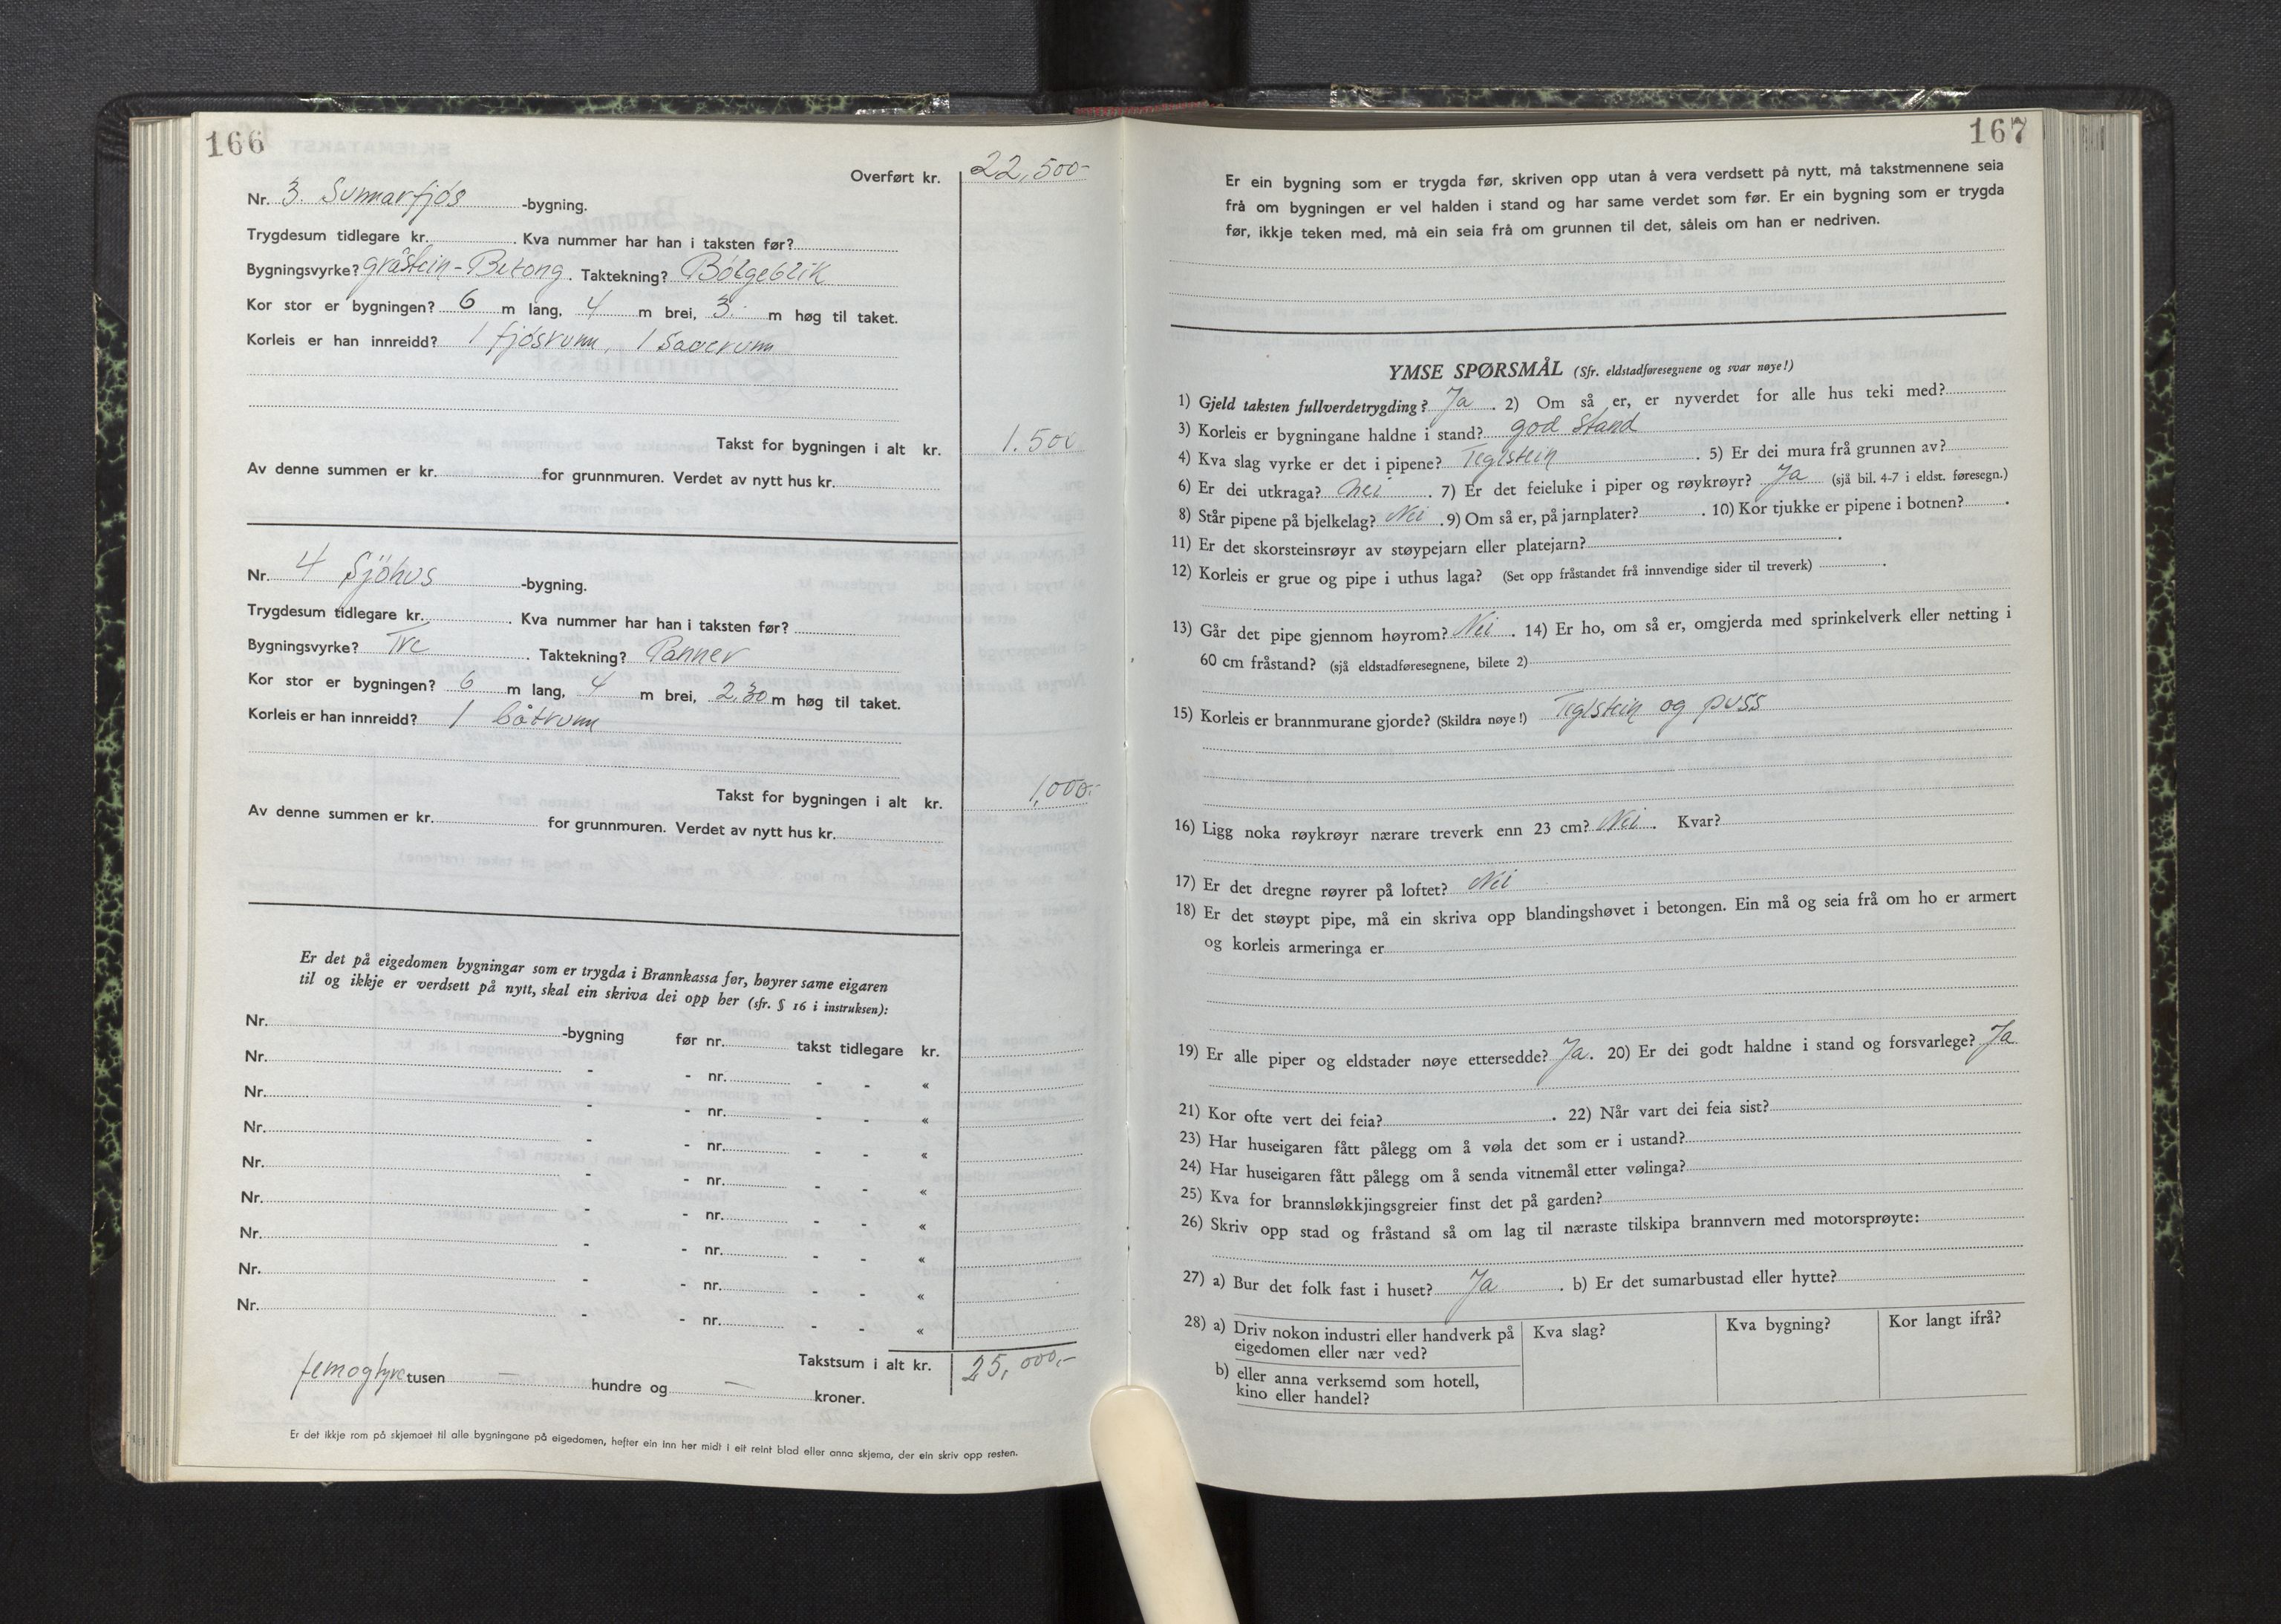 166
Overført kr. 22,500-
Nr. 3. Sumarfjös -bygning.
Trygdesum tidlegare kr. . Kva nummer har han i taksten før?
Bygningsvyrke? gråstein - Betong . Taktekning? Bölgeblik
Kor stor er bygningen? 6 m lang, 4 m brei, 3. m høg til taket.
Korleis er han innreidd? 1 fjösrum, 1 Sauerum
Takst for bygningen i alt kr. 1.500
Av denne summen er kr. for grunnmuren. Verdet av nytt hus kr.
Nr. 4 Sjöhus -bygning.
Trygdesum tidlegare kr. . Kva nummer har han i taksten før?
Bygningsvyrke? Tre . Taktekning? Panner
Kor stor er bygningen? 6 m lang, 4 m brei, 2.30 m høg til taket.
Korleis er han innreidd? 1 båtrum
Takst for bygningen i alt kr. 1,000.-
Av denne summen er kr. for grunnmuren. Verdet av nytt hus kr.
Er det på eigedomen bygningar som er trygda i Brannkassa før, høyrer same eigaren
til og ikkje er verdsett på nytt, skal ein skriva dei opp her (sfr. § 16 i instruksen):
Nr. -bygning før nr. takst tidlegare kr.
Nr. - - nr. - - «
Nr. - - nr. - - «
Nr. - - nr. - - «
Nr. - - nr. - - «
Nr. - - nr. - - «
Nr. - - nr. - - «
Nr. - - nr. - - «
Nr. - - nr. - - «
Takstsum i alt kr. 25,000,-
femogtyve tusen — hundre og — kroner.
Er det ikkje rom på skjemaet til alle bygningane på eigedomen, hefter ein inn her midt i eit reint blad eller anna skjema, der ein skriv opp resten.
167
Er ein bygning som er trygda før, skriven opp utan å vera verdsett på nytt, må takstmennene seia
frå om bygningen er vel halden i stand og har same verdet som før. Er ein bygning som er trygda
før, ikkje teken med, må ein seia frå om grunnen til det, såleis om han er nedriven.
YMSE SPØRSMÅL (Sfr. eldstadføresegnene og svar nøye!)
1) Gjeld taksten fullverdetrygding? Ja . 2) Om så er, er nyverdet for alle hus teki med?
3) Korleis er bygningane haldne i stand? god Stand
4) Kva slag vyrke er det i pipene? Teglstein . 5) Er dei mura frå grunnen av?
6) Er dei utkraga? nei . 7) Er det feieluke i piper og røykrøyr? Ja (sjå bil. 4-7 i eldst. føresegn.)
8) Står pipene på bjelkelag? Nei . 9) Om så er, på jarnplater? . 10) Kor tjukke er pipene i botnen? .
11) Er det skorsteinsrøyr av støypejarn eller platejarn? .
12) Korleis er grue og pipe i uthus laga? (Set opp fråstandet frå innvendige sider til treverk) .
13) Går det pipe gjennom høyrom? Nei . 14) Er ho, om så er, omgjerda med sprinkelverk eller netting i
60 cm fråstand? (sjå eldstadføresegnene, bilete 2)
15) Korleis er brannmurane gjorde? (Skildra nøye!) Teglstein og puss
16) Ligg noka røykrøyr nærare treverk enn 23 cm? Nei . Kvar?
17) Er det dregne røyrer på loftet? Nei
18) Er det støypt pipe, må ein skriva opp blandingshøvet i betongen. Ein må og seia frå om ho er armert
og korleis armeringa er
19) Er alle piper og eldstader nøye ettersedde? Ja. 20) Er dei godt haldne i stand og forsvarlege? Ja
21) Kor ofte vert dei feia? . 22) Når vart dei feia sist?
23) Har huseigaren fått pålegg om å vøla det som er i ustand?
24) Har huseigaren fått pålegg om å senda vitnemål etter vølinga?
25) Kva for brannsløkkjingsgreier finst det på garden?
26) Skriv opp stad og fråstand så om lag til næraste tilskipa brannvern med motorsprøyte:
27) a) Bur det folk fast i huset? Ja . b) Er det sumarbustad eller hytte?
28) a) Driv nokon industri eller handverk på
eigedomen eller nær ved?
Kva slag?
Kva bygning?
Kor langt ifrå?
b) eller anna verksemd som hotell,
kino eller handel?